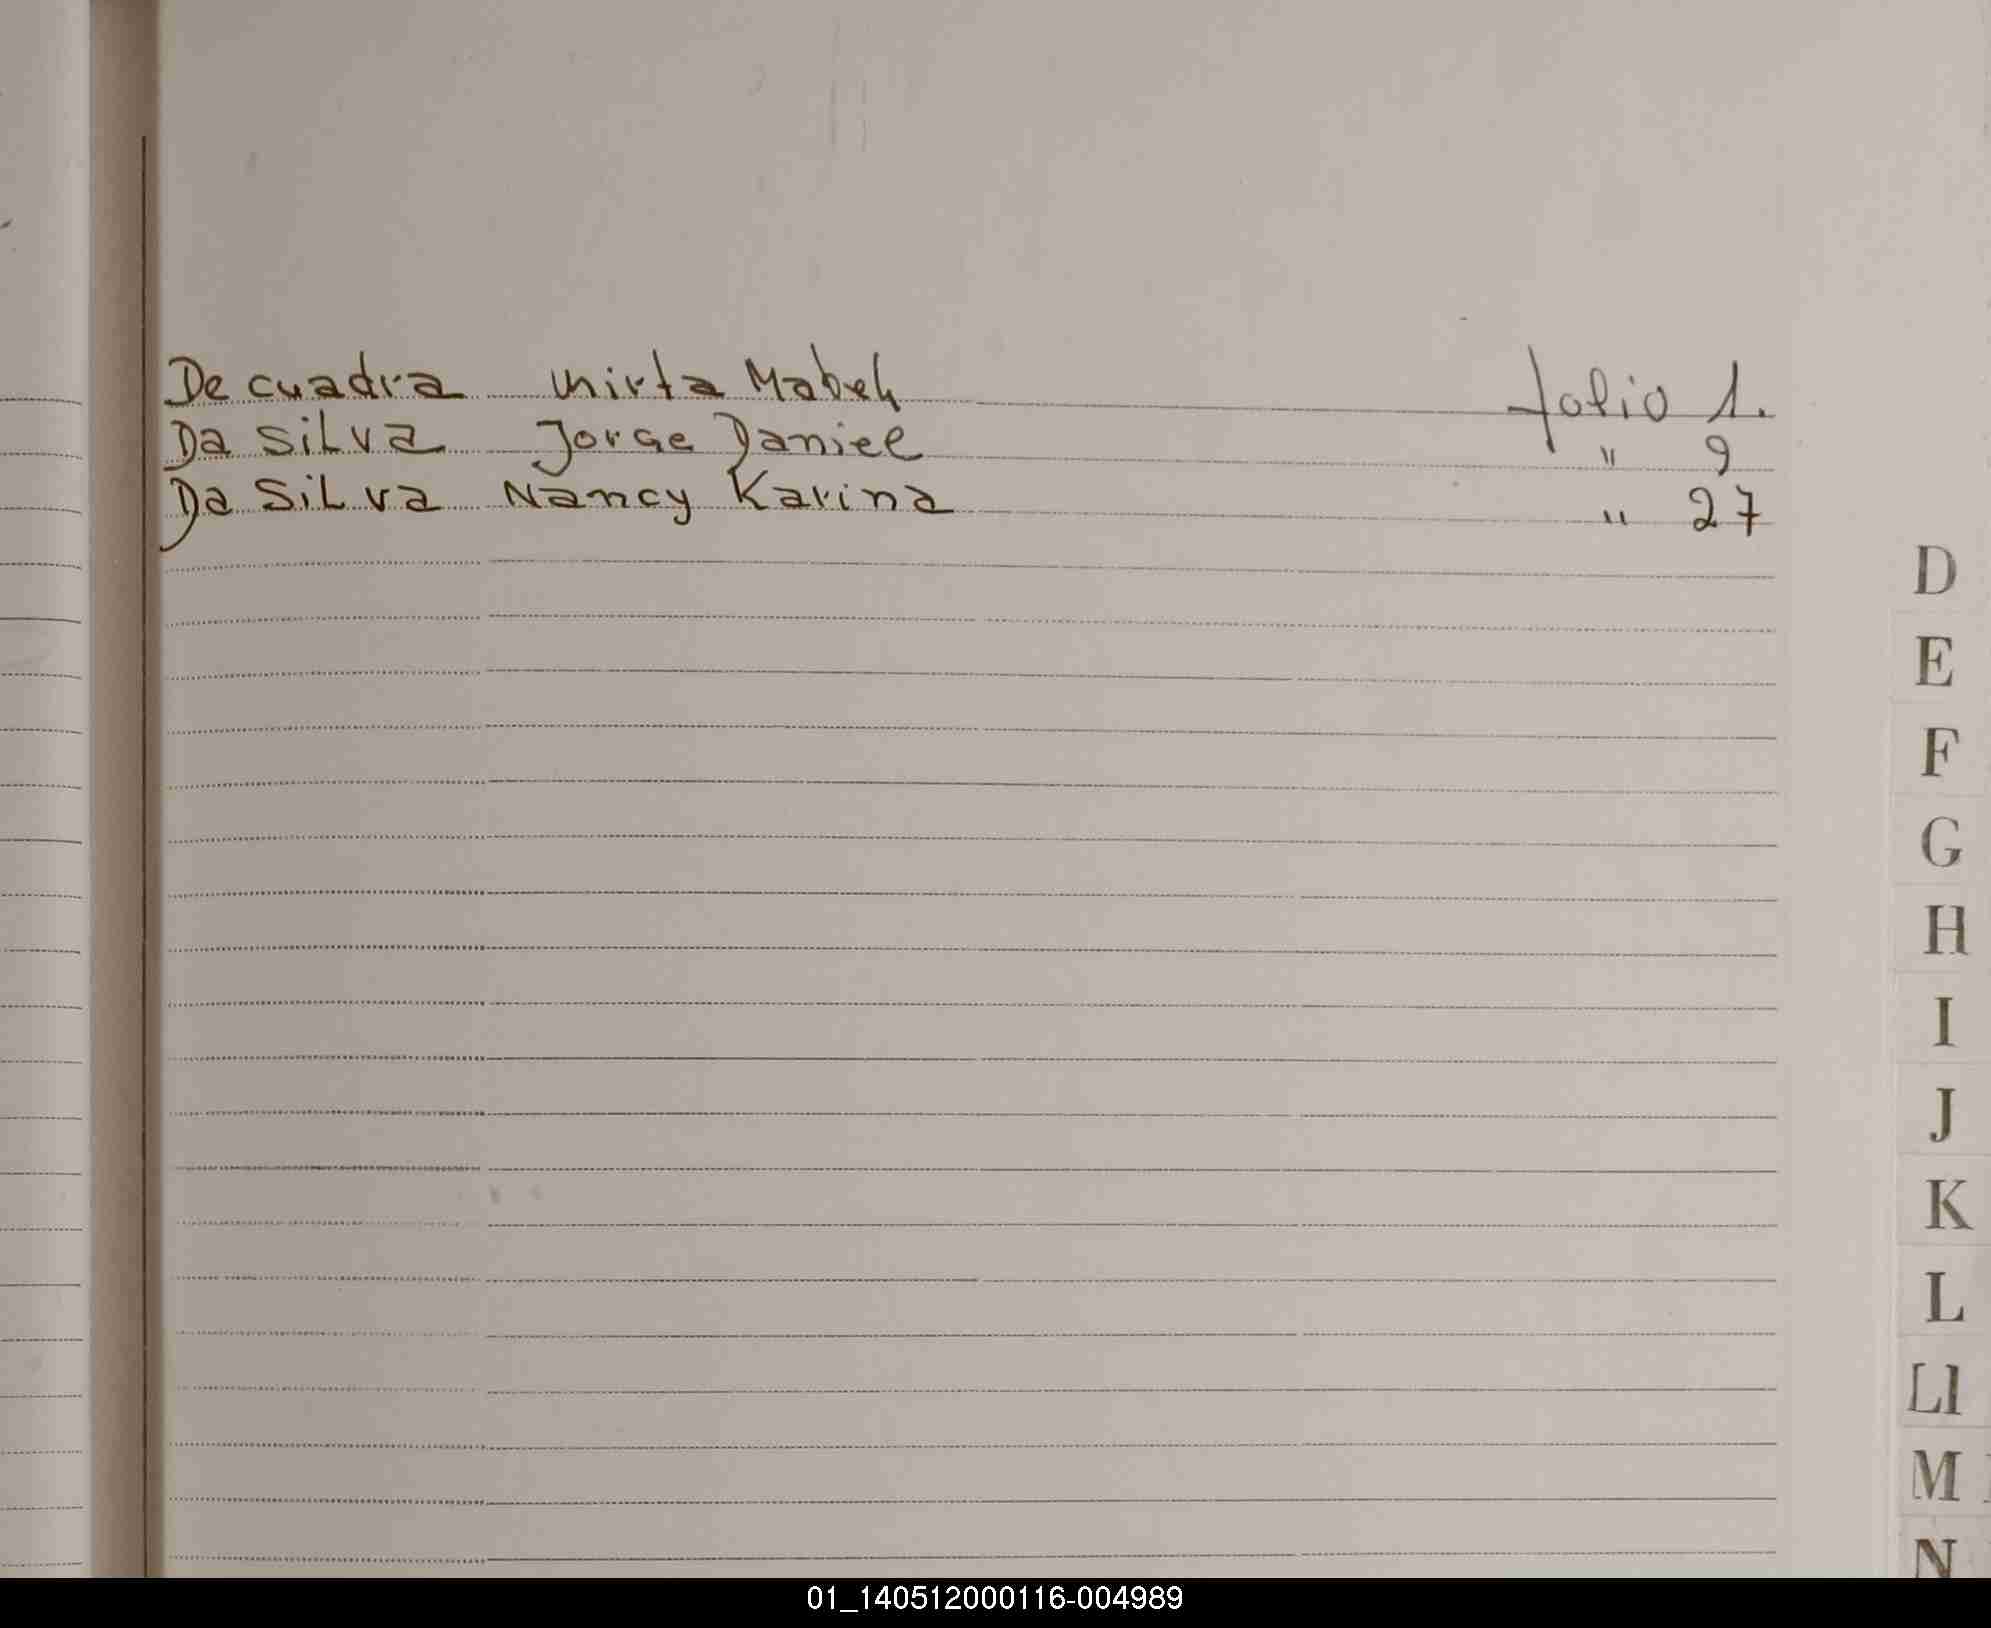 De cuadra Mirta Mabel folio 1.
Da Silva Jorge Daniel " 9
Da Silva Nancy Karina " 27
D
E
F
G
H
I
J
K
L
Ll
M
N
01_140512000116-004989